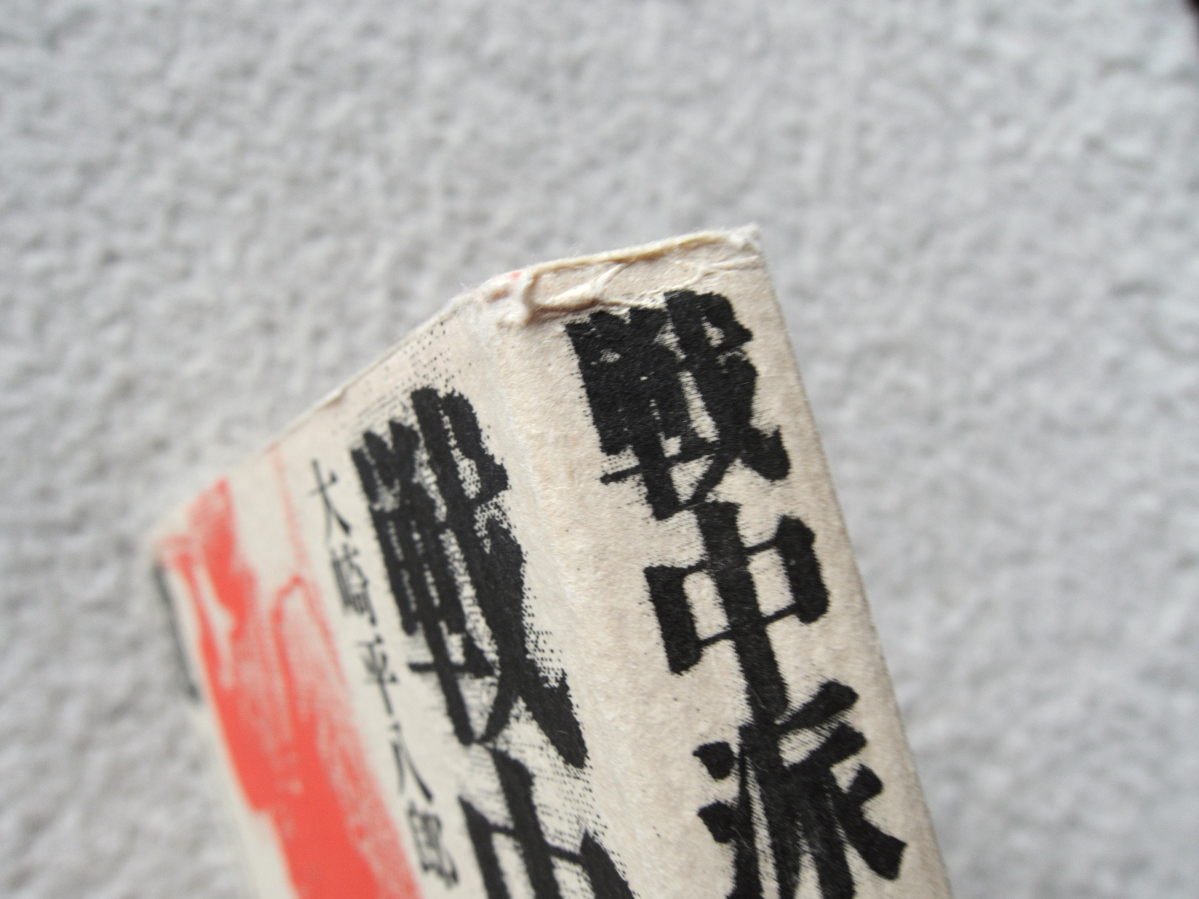 戦中派
戦中
大崎平八郎